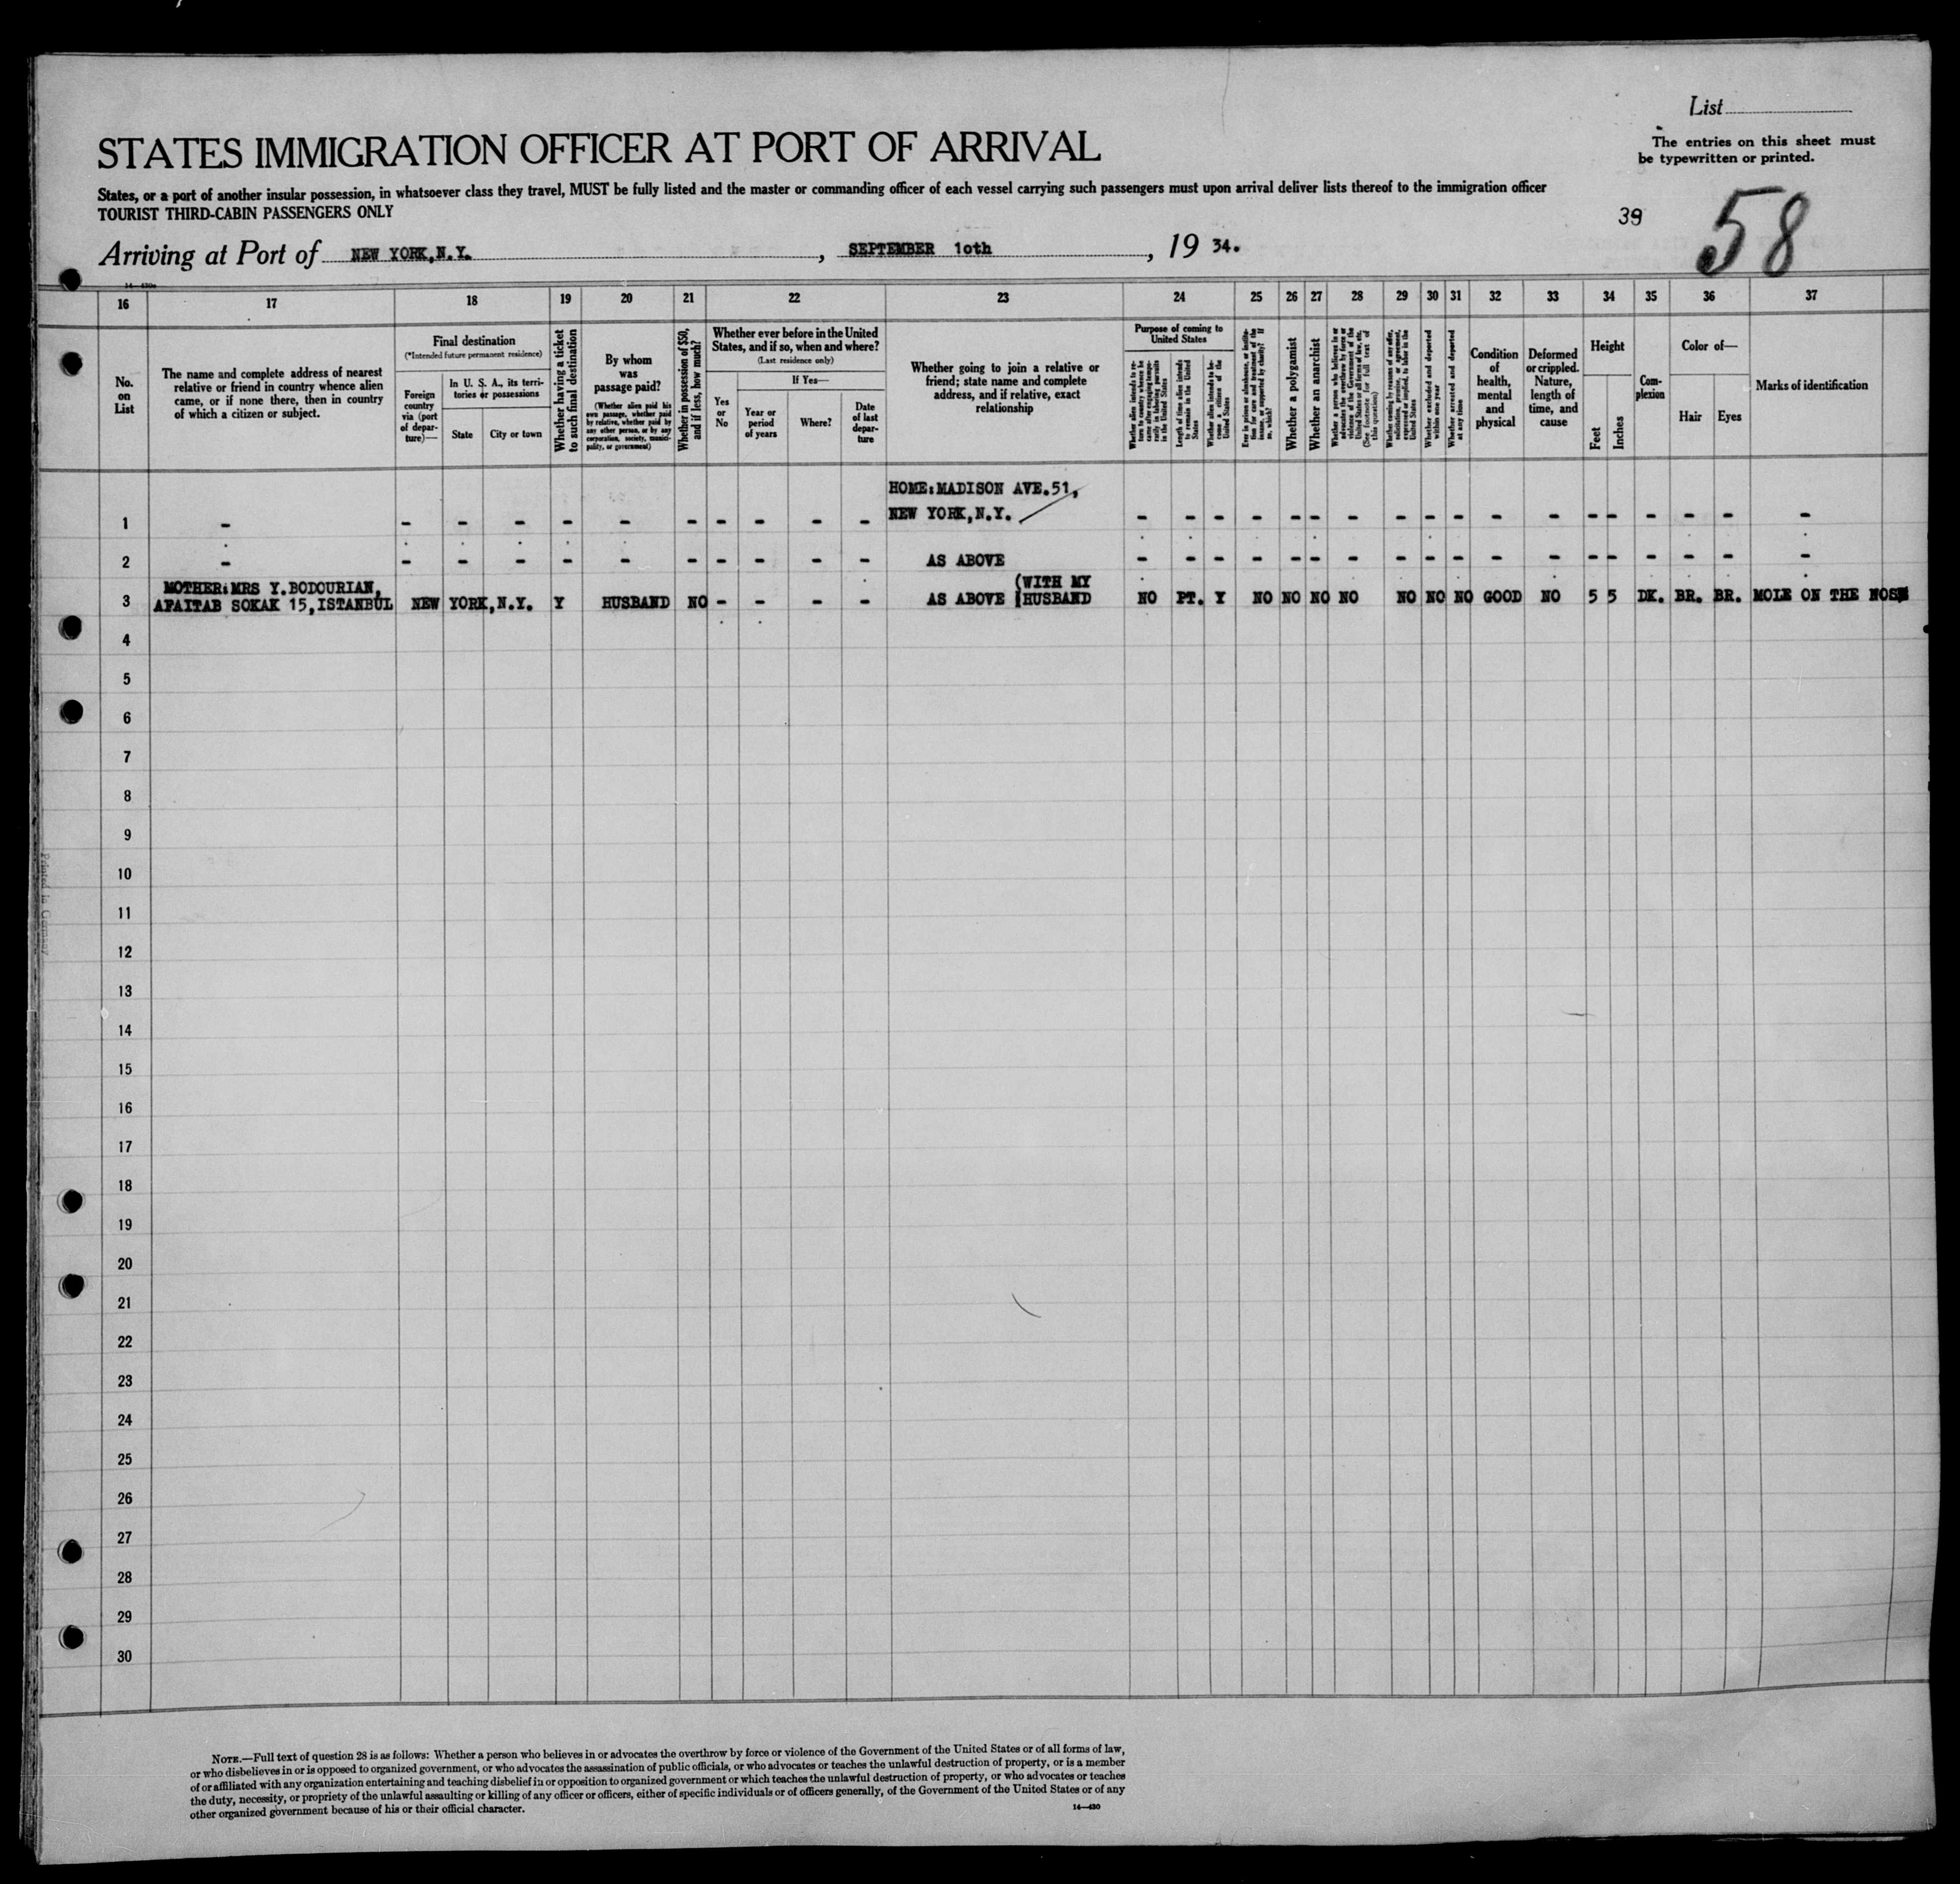 List
The entries on this sheet must
be typewritten or printed.
STATES IMMIGRATION OFFICER AT PORT OF ARRIVAL
States, or a part of another insular possession, in whatsoever class they travel, MUST be fully listed and the master or commanding officer of each vessel carrying such passengers must upon arrival deliver lists thereof to the immigration officer
TOURIST THIRD-CABIN PASSENGERS ONLY
39
58
Arriving at Port of NEW YORK,N.Y. , SEPTEMBER 10th , 19 34.
16 17 18 19 20 21 22 23 24 25 26 27 28 29 30 31 32 33 34 35 36 37
No.
on
List
The name and complete address of nearest
relative or friend in country whence alien
came, or if none there, then in country
of which a citizen or subject.
Final destination
(*Intended future permanent residence)
Foreign
country
via (port
of depar-
ture)—
In U. S. A., its terri-
tories or possessions
State
City or town
Whether having a ticket
to such final destination
By whom
was
passage paid?
(Whether alien paid his
own passage, whether paid
by relative, whether paid by
any other person, or by any
corporation, society, munici-
pality, or government)
Whether in possession of $50,
and if less, how much?
Whether ever before in the United
States, and if so, when and where?
(Last residence only)
Yes
or
No
If Yes—
Year or
period
of years
Where?
Date
of last
depar-
ture
Whether going to join a relative or
friend; state name and complete
address, and if relative, exact
relationship
Purpose of coming to
United States
Length of time alien intends
to remain in the United
States
Whether alien intends to be-
come a citizen of the
United States
Whether a polygamist
Whether an anarchist
Whether excluded and deported
within one year
Whether arrested and deported
at any time
Condition
of
health,
mental
and
physical
Deformed
or crippled.
Nature,
length of
time, and
cause
Height
Feet
Inches
Com-
plexion
Color of—
Hair
Eyes
Marks of identification
HOME:MADISON AVE.51,
1 - - - - - - - - - - - NEW YORK,N.Y. - - - - - - - - - - - - - - - - - -
2 - - - - - - - - - - - AS ABOVE - - - - - - - - - - - - - - - - - -
MOTHER:MRS Y.BODOURIAN, (WITH MY
3 AFAITAB SOKAK 15,ISTANBUL NEW YORK,N.Y. Y HUSBAND NO - - - - AS ABOVE (HUSBAND NO PT. Y NO NO NO NO NO NO NO GOOD NO 5 5 DK. BR. BR. MOLE ON THE NOSE
4
5
6
7
8
9
10
11
12
13
14
15
16
17
18
19
20
21
22
23
24
25
26
27
28
29
30
NOTE.—Full text of question 28 is as follows: Whether a person who believes in or advocates the overthrow by force or violence of the Government of the United States or of all forms of law,
or who disbelieves in or is opposed to organized government, or who advocates the assassination of public officials, or who advocates or teaches the unlawful destruction of property, or is a member
of or affiliated with any organization entertaining and teaching disbelief in or opposition to organized government or which teaches the unlawful destruction of property, or who advocates or teaches
the duty, necessity, or propriety of the unlawful assaulting or killing of any officer or officers, either of specific individuals or of officers generally, of the Government of the United States or of any
other organized government because of his or their official character.
14—430